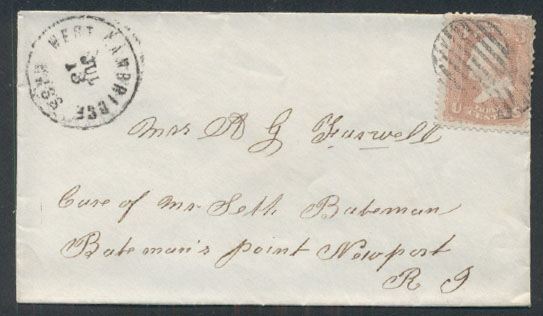 WEST CAMBRIDGE MASS
JUL
13
U
Mrs A G Farwell
Care of Mr Seth Bateman
Bateman's point Newport
R I